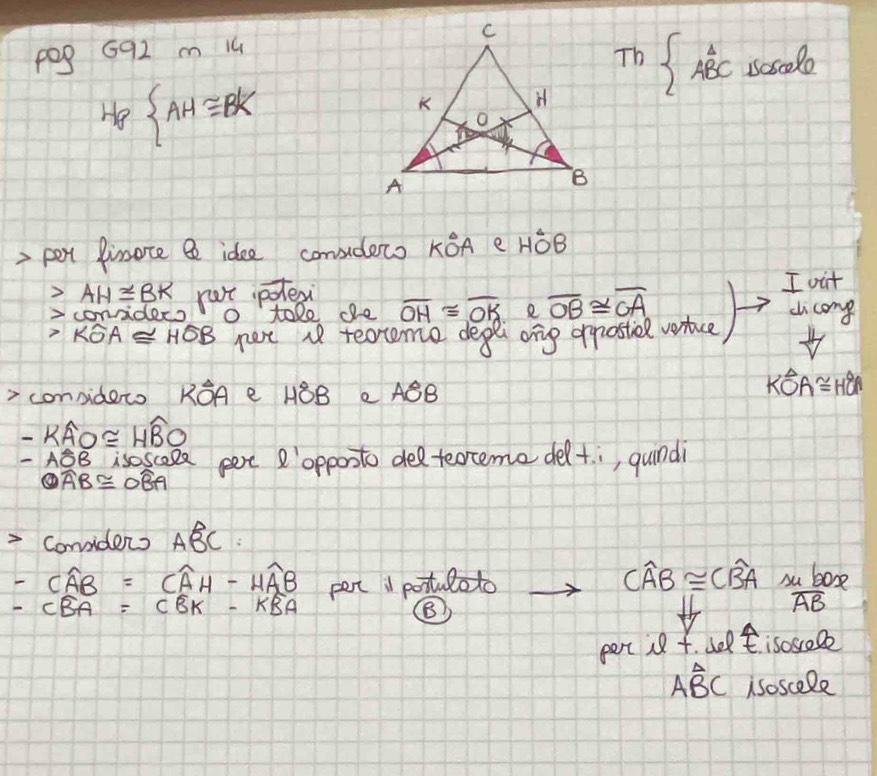 pag G92 n 14
Hp { AH ≅ BK
Th { ABC isoscele
C
K
H
O
A
B
> per fissare le idee considero KOA e HOB
> AH ≅ BK per ipotesi
> considero O tale che OH ≅ OK e OB ≅ OA
> KOA ≅ HOB per il teorema degli ang opposti al vertice
→ I crit
di cong
⇓
KOA ≅ HOB
> considero KOA e HOB e AOB
- KAO ≅ HBO
- AOB isoscele per l'opposto del teorema del t.i, quindi
OAB ≅ OBA
> Considero ABC:
- CAB = CAH - HAB per il postulato
- CBA = CBK - KBA B
→ CAB ≅ CBA su base
AB
⇓
per il t. del t. isoscele
ABC isoscele